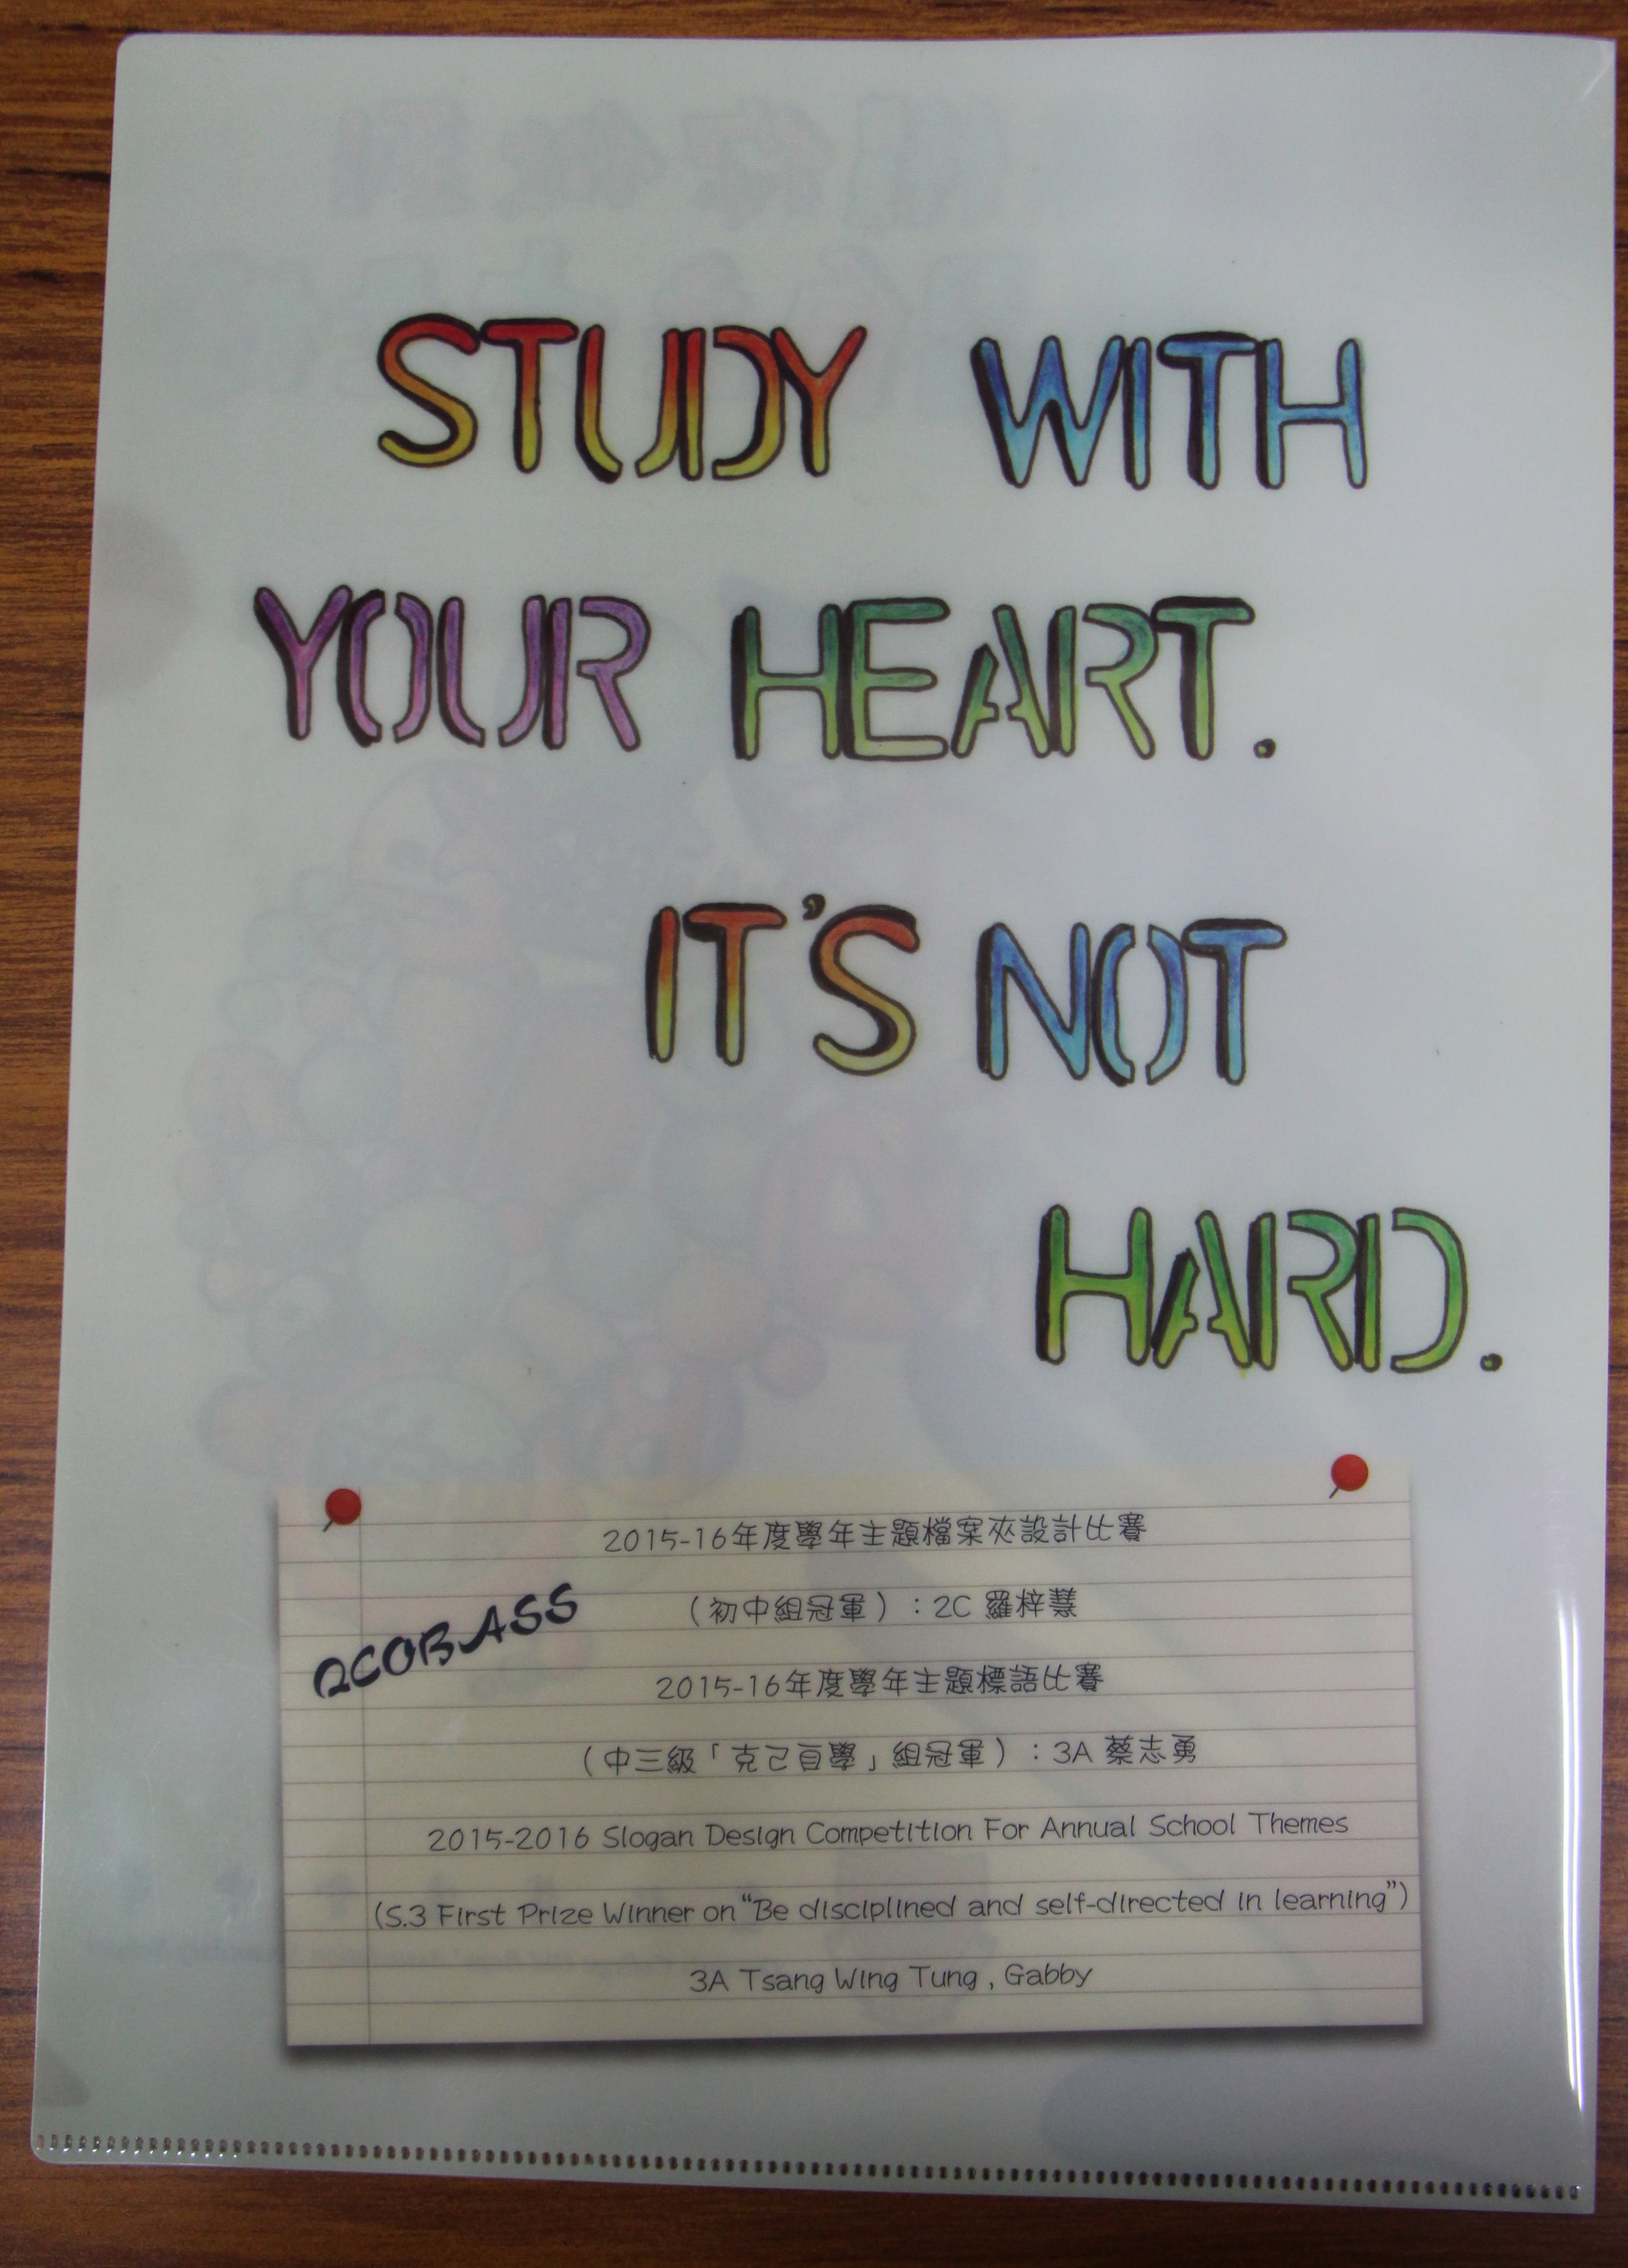 STUDY WITH
YOUR HEART.
IT'S NOT
HARD.
2015-16年度學年主題檔案夾設計比賽
（初中組冠軍）：2C 羅梓慧
QCOBASS
2015-16年度學年主題標語比賽
（中三級「克己自學」組冠軍）：3A 蔡志勇
2015-2016 Slogan Design Competition For Annual School Themes
(S.3 First Prize Winner on “Be disciplined and self-directed in learning”)
3A Tsang Wing Tung , Gabby